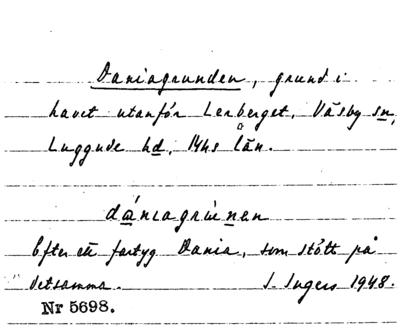 Daniagrunden, grund i
havet utanför Lerberget, Väsby sn,
Luggude hd, Mhs län.
dániagrúnen
Efter ett fartyg Dania, som stött på
detsamma. I. Ingers 1948.
Nr 5698.